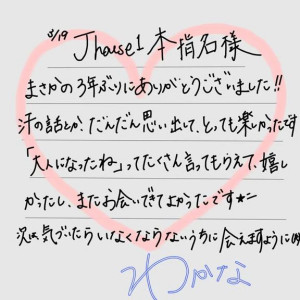 8/19
Jhouse1本指名様
まさかの3年ぶりにありがとうございました!!
汗の話とか、だんだん思い出して、とっても楽しかったです
「大人になったね」ってたくさん言ってもらえて、嬉し
かったし、またお会いできてよかったです★=
次は気づいたらいなくならないうちに会えますように
わかな